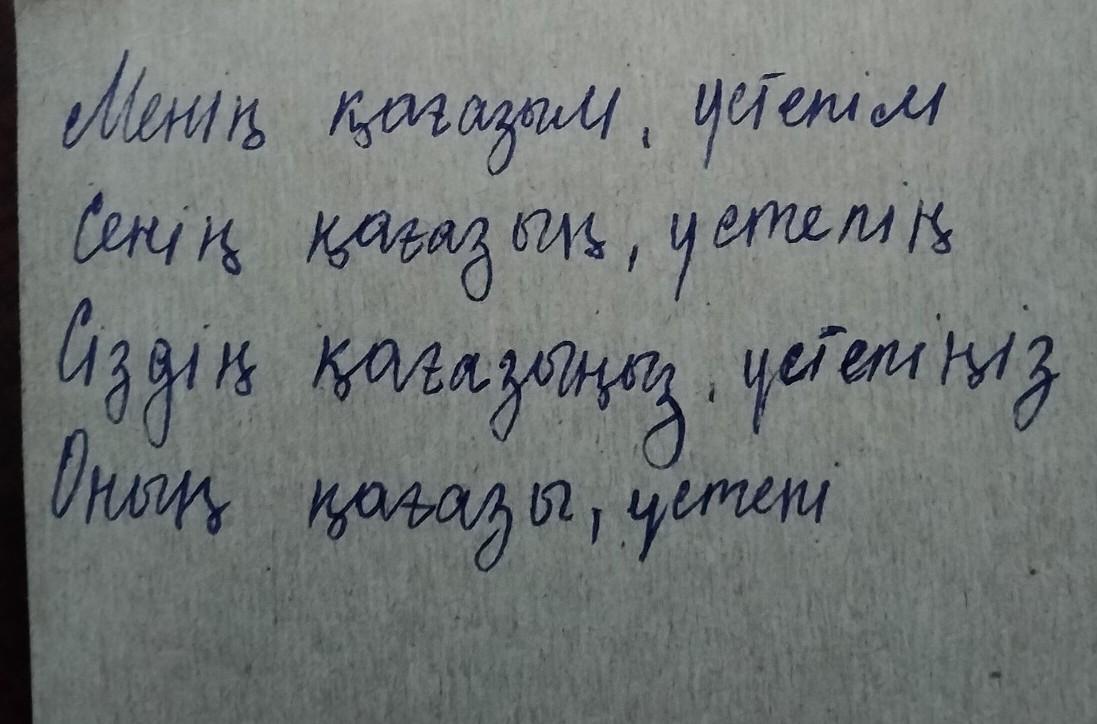 Менің қағазым, үстелім
Сенің қағазың, үстелің
Сіздің қағазыңыз, үстеліңіз
Оның қағазы, үстелі